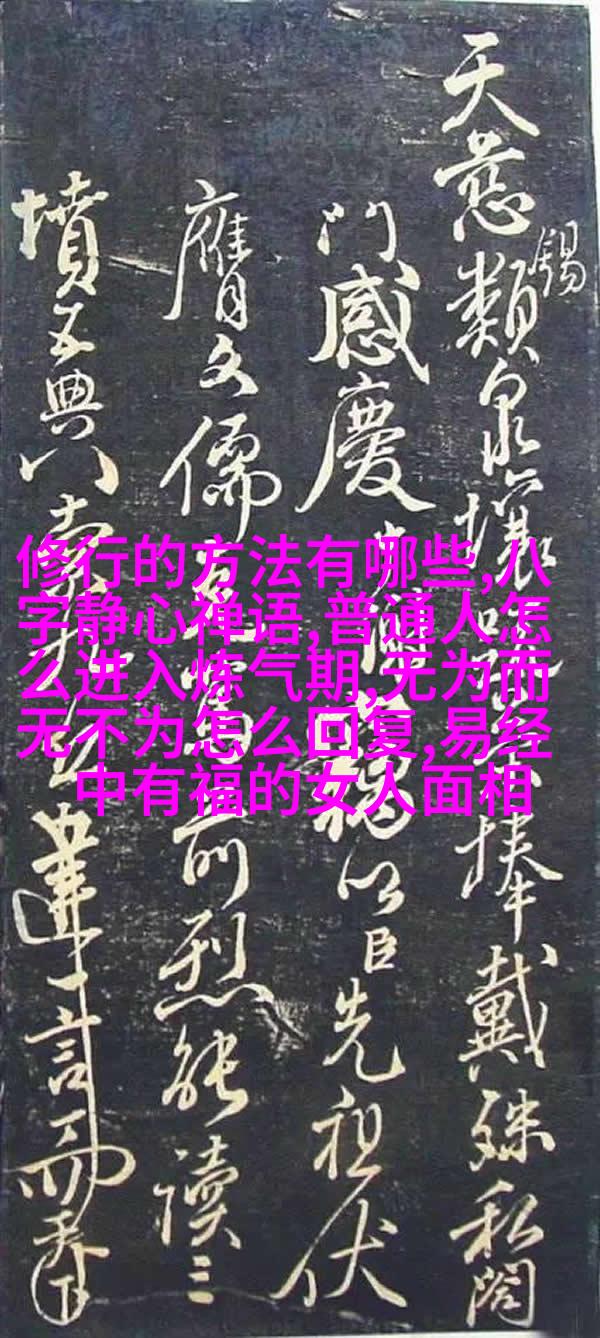 天慈锡類泉壤□□□捧戴殊私閤
門感慶□□□魂以臣先祖伏
膺文儒□□當前烈能讀三
墳五典八索九丘達言而□
修行的方法有哪些,八
字静心禅语,普通人怎
么进入炼气期,无为而
无不为怎么回复,易经
中有福的女人面相